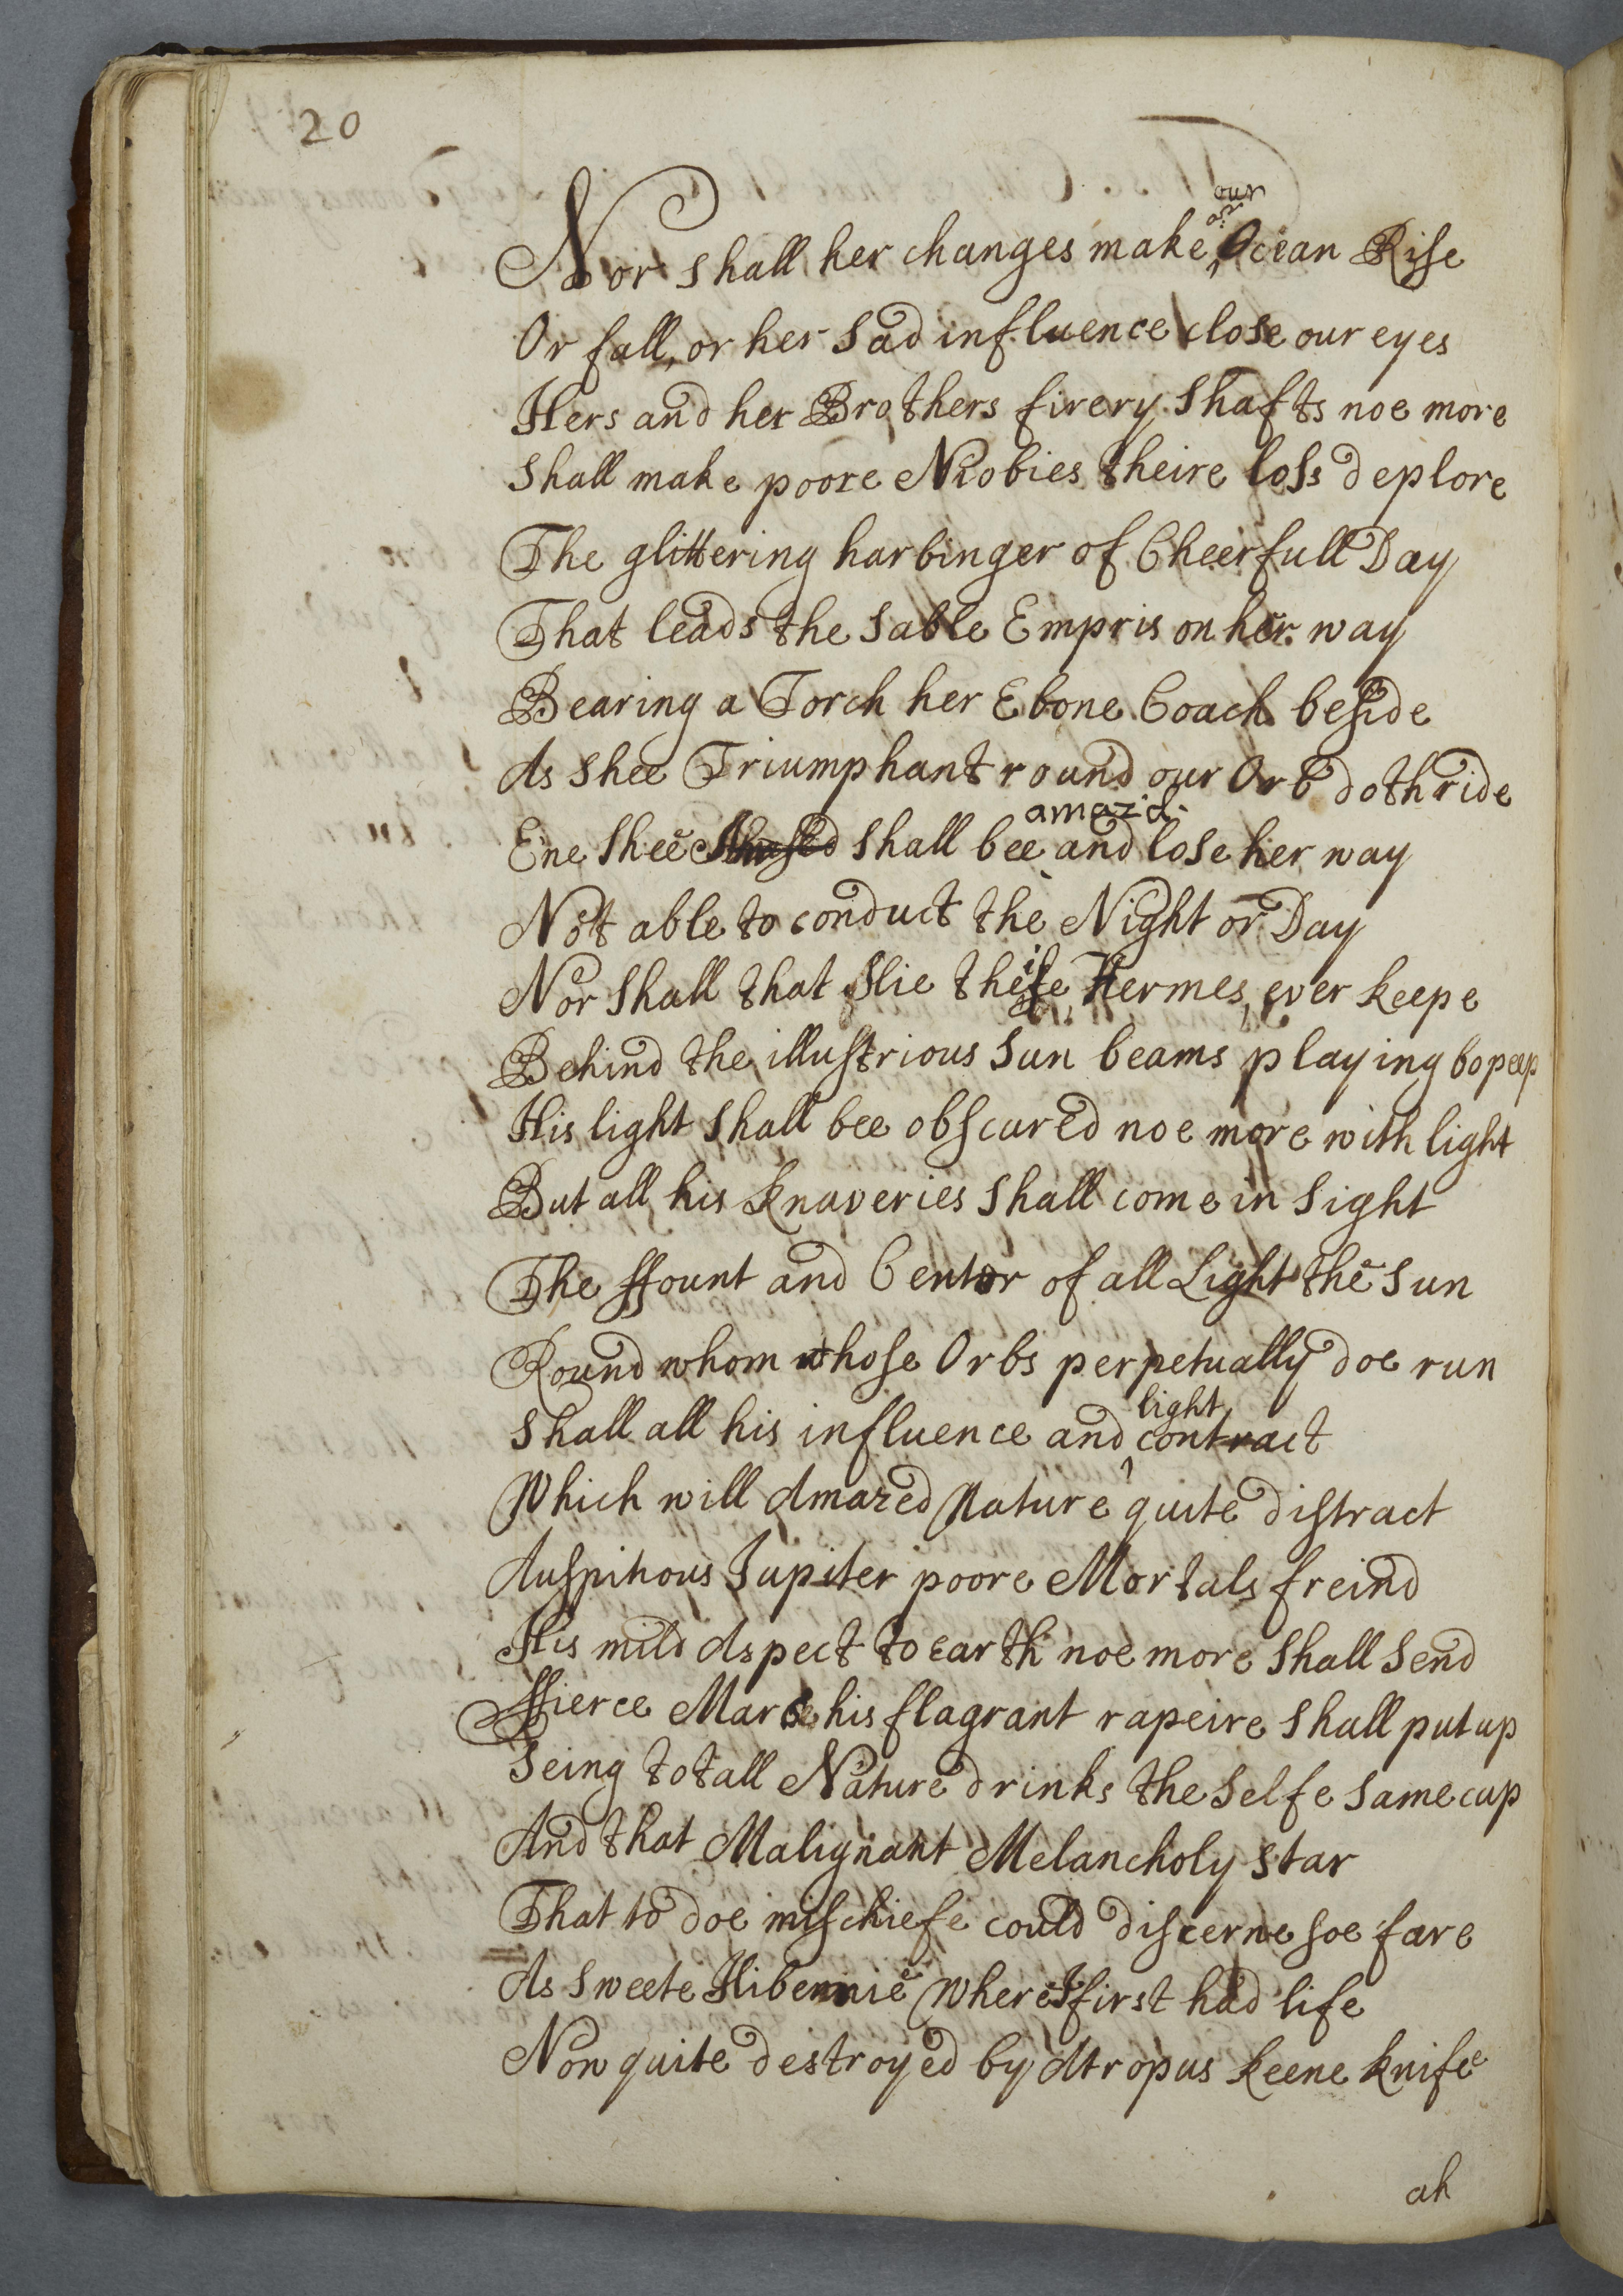 20
Nor shall her changes make our Ocean Rise
Or fall, or her sad influence close our eyes
Hers and her Brothers firery shafts noe more
Shall make poore Niobies theire loss deplore
The glittering harbinger of Cheerfull Day
That leads the sable Empris on her way
Bearing a Torch her Ebone Coach beside
As shee Triumphant round our Orb doth ride
Ene shee shall bee amaz'd and lose her way
Not able to conduct the Night or Day
Nor shall that slie theife Hermes, ever keepe
Behind the illustrious Sun beams playing bopeep
His light shall bee obscured noe more with light
But all his knaveries shall come in sight
The ffount and Center of all Light the Sun
Round whom those Orbs perpetually doe run
Shall all his influence and light contract
Which will Amazed Nature quite distract
Auspitious Jupiter poore Mortals freind
His mild Aspect to earth noe more shall send
ffierce Marse his flagrant rapeire shall put up
Seing totall Nature drinks the selfe same cup
And that Malignant Melancholy star
That to doe mischiefe could discerne soe fare
As sweete Hibernie where I first had life
Now quite destroyed by Atropus keene knife
ah